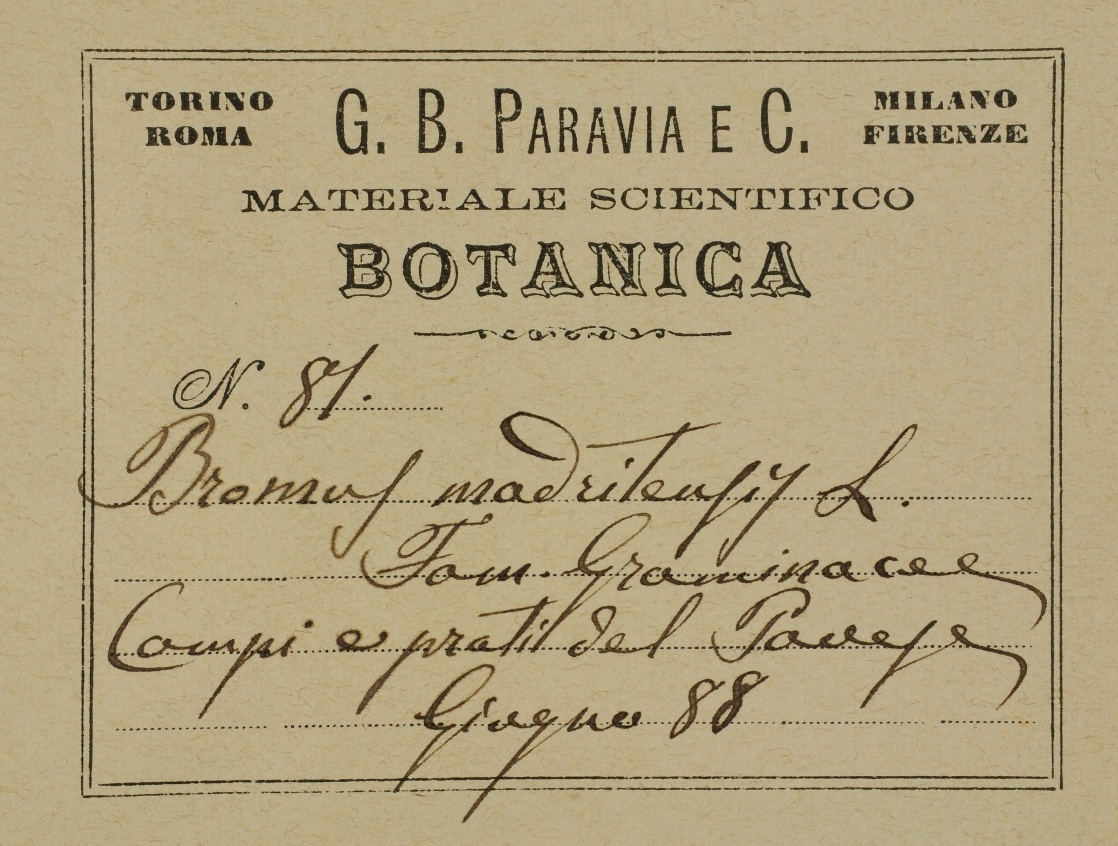 TORINO G. B. PARAVIA E C. MILANO
ROMA FIRENZE
MATERIALE SCIENTIFICO
BOTANICA
N. 87.
Bromus madritensis L.
Fam. Graminacee
Campi e prati del Pavese
Giugno 88